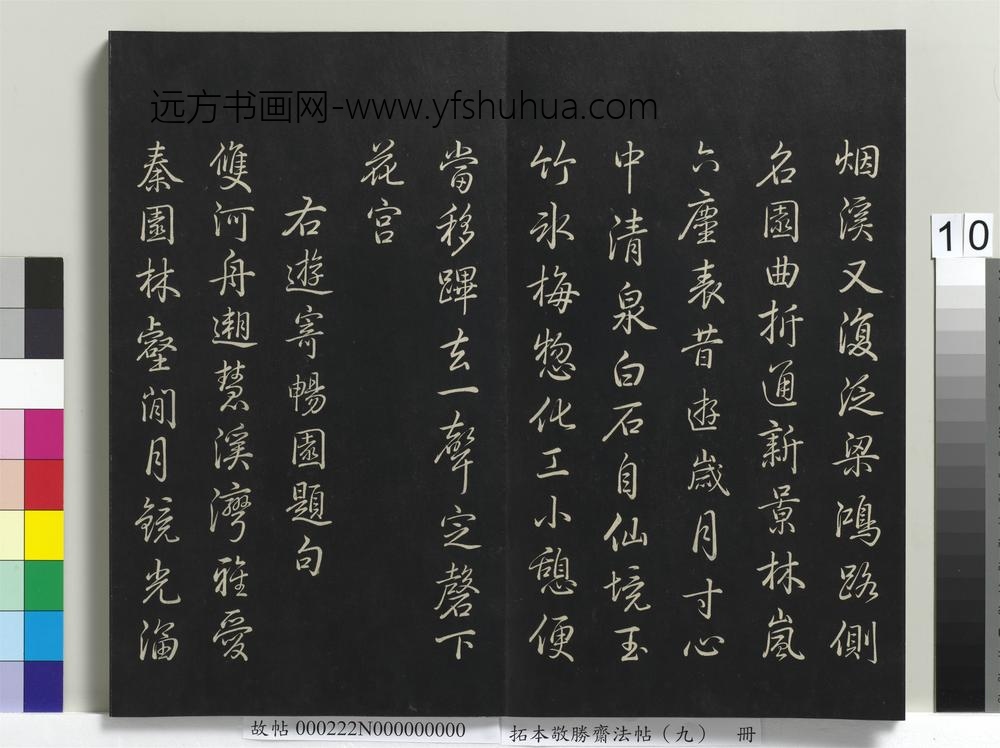 远方书画网-www.yfshuhua.com
烟溪又復泛梁鴻路側
名園曲折通新景林嵐
六塵表昔遊歲月寸心
中清泉白石自仙境玉
竹冰梅惣化工小憩便
當移蹕去一聲定磬下
花宮
右遊寄暢園題句
雙河舟遡慧溪灣雅愛
秦園林壑閒月鏡光
10
故帖 000222N000000000
拓本敬勝齋法帖（九） 冊